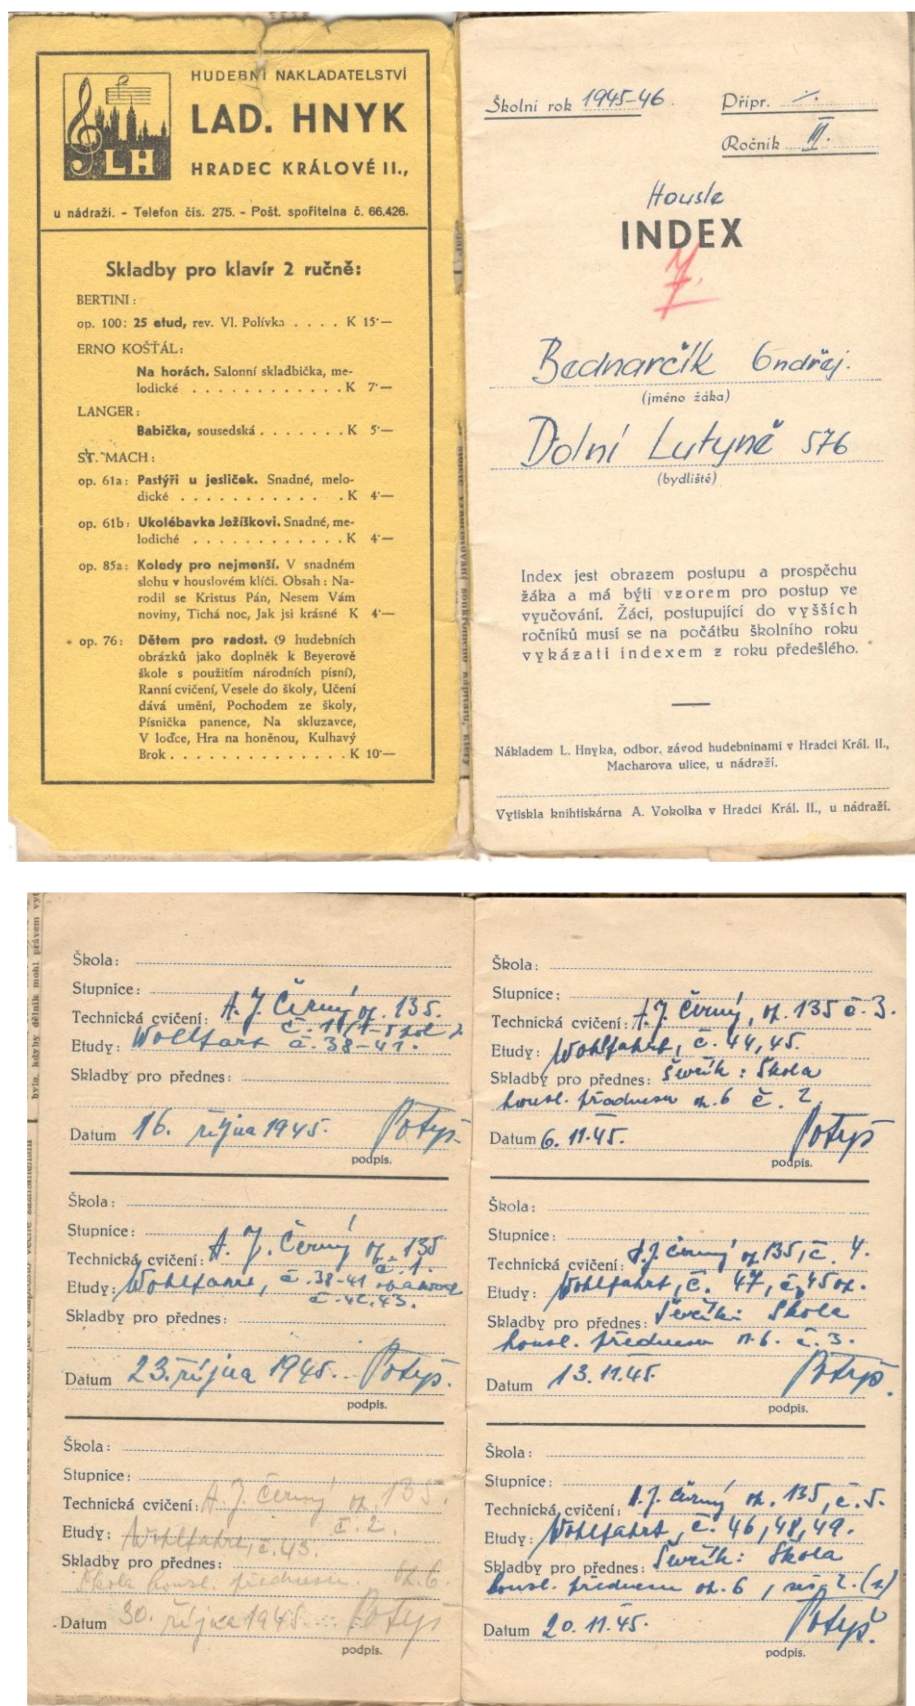 HUDEBNÍ NAKLADATELSTVÍ
LAD. HNYK
LH
HRADEC KRÁLOVÉ II.,
u nádraží. - Telefon čís. 275. - Pošt. spořitelna č. 66.426.
Skladby pro klavír 2 ručně:
BERTINI:
op. 100: 25 etud, rev. Vl. Polívka . . . . K 15·—
ERNO KOŠŤÁL:
Na horách. Salonní skladbička, me-
lodické . . . . . . . . . . . . K 7·—
LANGER:
Babička, sousedská . . . . . . . K 5·—
ST. MACH:
op. 61a: Pastýři u jesliček. Snadné, melo-
dické . . . . . . . . . . . . . K 4·—
op. 61b: Ukolébavka Ježíškovi. Snadné, me-
lodiché . . . . . . . . . . . . K 4·—
op. 85a: Koledy pro nejmenší. V snadném
slohu v houslovém klíči. Obsah: Na-
rodil se Kristus Pán, Nesem Vám
noviny, Tichá noc, Jak jsi krásné K 4·—
op. 76: Dětem pro radost. (9 hudebních
obrázků jako doplněk k Beyerově
škole s použitím národních písní),
Ranní cvičení, Vesele do školy, Učení
dává umění, Pochodem ze školy,
Písnička panence, Na skluzavce,
V loďce, Hra na honěnou, Kulhavý
Brok . . . . . . . . . . . . . . K 10·—
Školní rok 1945-46.
Přípr. -/.
Ročník II.
Housle
INDEX
7.
Bednarčík Ondřej.
(jméno žáka)
Dolní Lutyně 576
(bydliště)
Index jest obrazem postupu a prospěchu
žáka a má býti vzorem pro postup ve
vyučování. Žáci, postupující do vyšších
ročníků musí se na počátku školního roku
vykázati indexem z roku předešlého.
Nákladem L. Hnyka, odbor. závod hudebninami v Hradci Král. II.,
Macharova ulice, u nádraží.
Vytiskla knihtiskárna A. Vokolka v Hradci Král. II., u nádraží.
Škola:
Stupnice:
Technická cvičení: A. J. Černý op. 135.
Etudy: Wolfart č. 38-41.
Skladby pro přednes:
Datum 16. října 1945. Potyš
podpis.
Škola:
Stupnice:
Technická cvičení: A. J. Černý op. 135
č. 1.
Etudy: Wohlfahrt, č. 38-41
č. 42, 43.
Skladby pro přednes:
Datum 23. října 1945. Potyš.
podpis.
Škola:
Stupnice:
Technická cvičení: A. J. Černý op. 135.
č. 2.
Etudy: Wohlfahrt, č. 43.
Skladby pro přednes:
Škola housl. přednesu. op. 6.
Datum 30. října 1945. Potyš
podpis.
Škola:
Stupnice:
Technická cvičení: A. J. Černý, op. 135 č. 3.
Etudy: Wohlfahrt, č. 44, 45.
Skladby pro přednes: Ševčík: Škola
housl. přednesu op. 6 č. 2.
Datum 6. 11. 45. Potyš
podpis.
Škola:
Stupnice:
Technická cvičení: A. J. Černý op 135, č. 4.
Etudy: Wohlfahrt, č. 47, č. 45 op.
Skladby pro přednes: Ševčík: Škola
housl. přednesu op. 6. č. 3.
Datum 13. 11. 45. Potyš.
podpis.
Škola:
Stupnice:
Technická cvičení: A. J. Černý op. 135, č. 5.
Etudy: Wohlfahrt, č. 46, 48, 49.
Skladby pro přednes: Ševčík: Škola
housl. přednesu op. 6, seš. 2.
Datum 20. 11. 45. Potyš.
podpis.